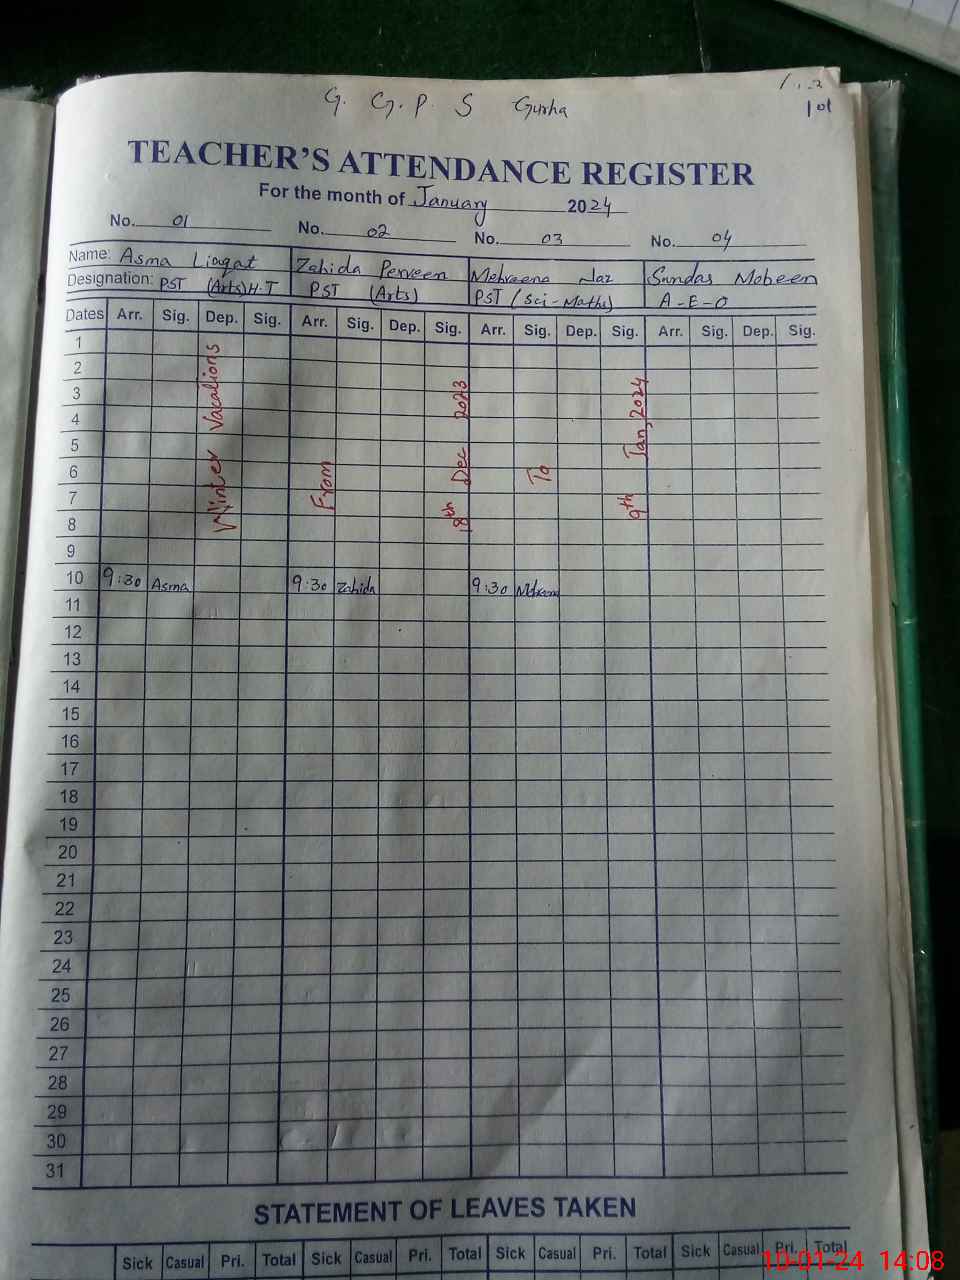 G. G. P. S Gurha
101
TEACHER'S ATTENDANCE REGISTER
For the month of January 2024
No. 01 No. 02 No. 03 No. 04
Name: Asma Liaqat Zahida Perveen Mehreena Naz Sundas Mobeen
Designation: PST (Arts) H.T PST (Arts) PST (Sci-Maths) A-E-O
Dates Arr. Sig. Dep. Sig. Arr. Sig. Dep. Sig. Arr. Sig. Dep. Sig. Arr. Sig. Dep. Sig.
Winter Vacations From 18th Dec 2023 To 9th Jan, 2024
1
2
3
4
5
6
7
8
9
10 9:30 Asma 9:30 Zahida 9:30
11
12
13
14
15
16
17
18
19
20
21
22
23
24
25
26
27
28
29
30
31
STATEMENT OF LEAVES TAKEN
Sick Casual Pri. Total Sick Casual Pri. Total Sick Casual Pri. Total Sick Casual Pri. Total
10-01-24 14:08